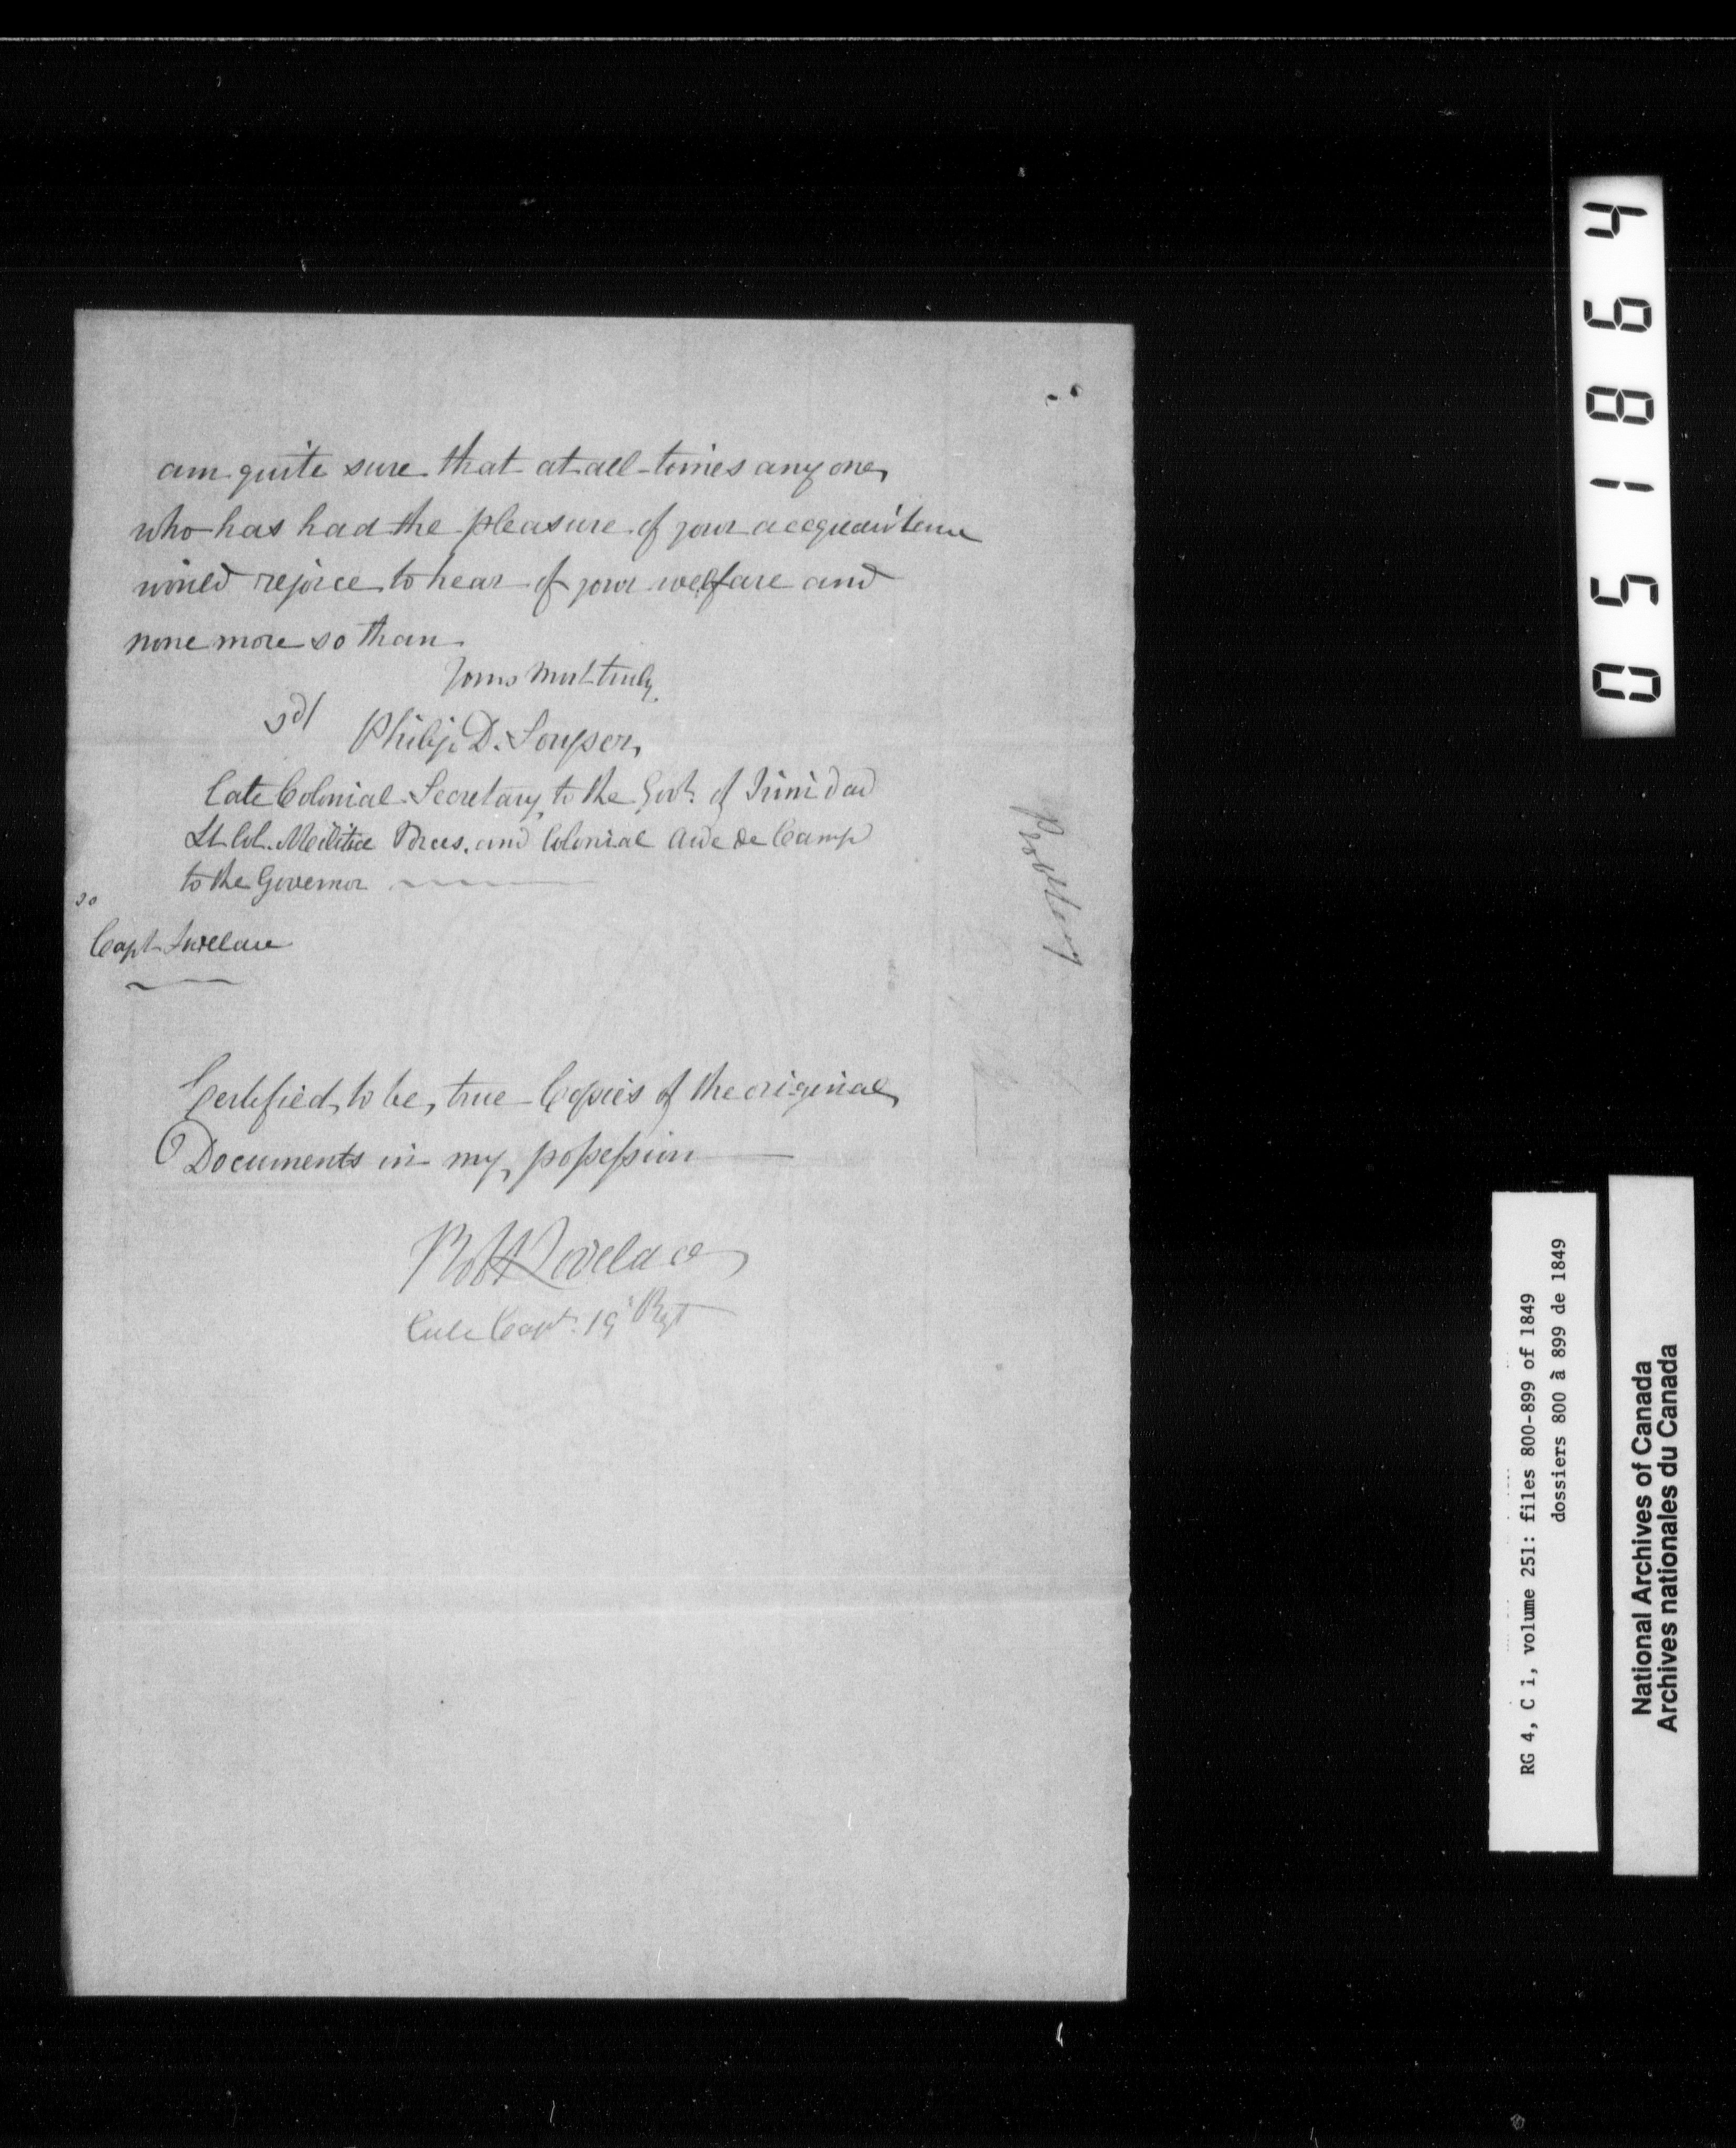 am quite sure that at all times any one
who has had the pleasure of your acquaintance
would rejoice to hear of your welfare and
none more so than
Yours most truly
sd/ Philip D. Souper
Late Colonial Secretary to the Govt. of Trinidad
Lt Col. Militia Forces, and Colonial Aide de Camp
to the Governor
so
Capt Lovelace
Certified to be, true Copies of the original
Documents in my possession
Robt Lovelace
Late Capt. 19 Regt
051864
RG 4, C i, volume 251: files 800-899 of 1849
dossiers 800 à 899 de 1849
National Archives of Canada
Archives nationales du Canada